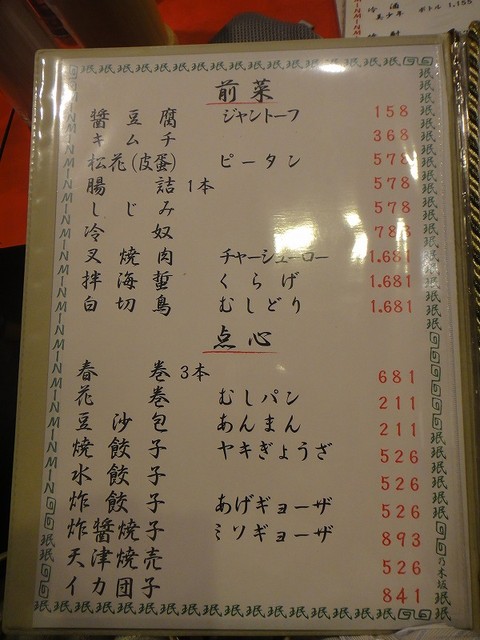 冷酒 ボトル 1,155
美少年
前菜
醬豆腐 ジャントーフ 158
キムチ 368
松花(皮蛋) ピータン 578
腸詰1本 578
しじみ 578
冷奴 788
叉焼肉 チャーシューロー 1.681
拌海蜇 くらげ 1.681
白切鳥 むしどり 1.681
点心
春巻3本 681
花巻 むしパン 211
豆沙包 あんまん 211
焼餃子 ヤキぎょうざ 526
水餃子 526
炸餃子 あげギョーザ 526
炸醬焼子 ミソギョーザ 893
天津焼売 526
イカ団子 841
乃木坂
珉珉
MINMIN